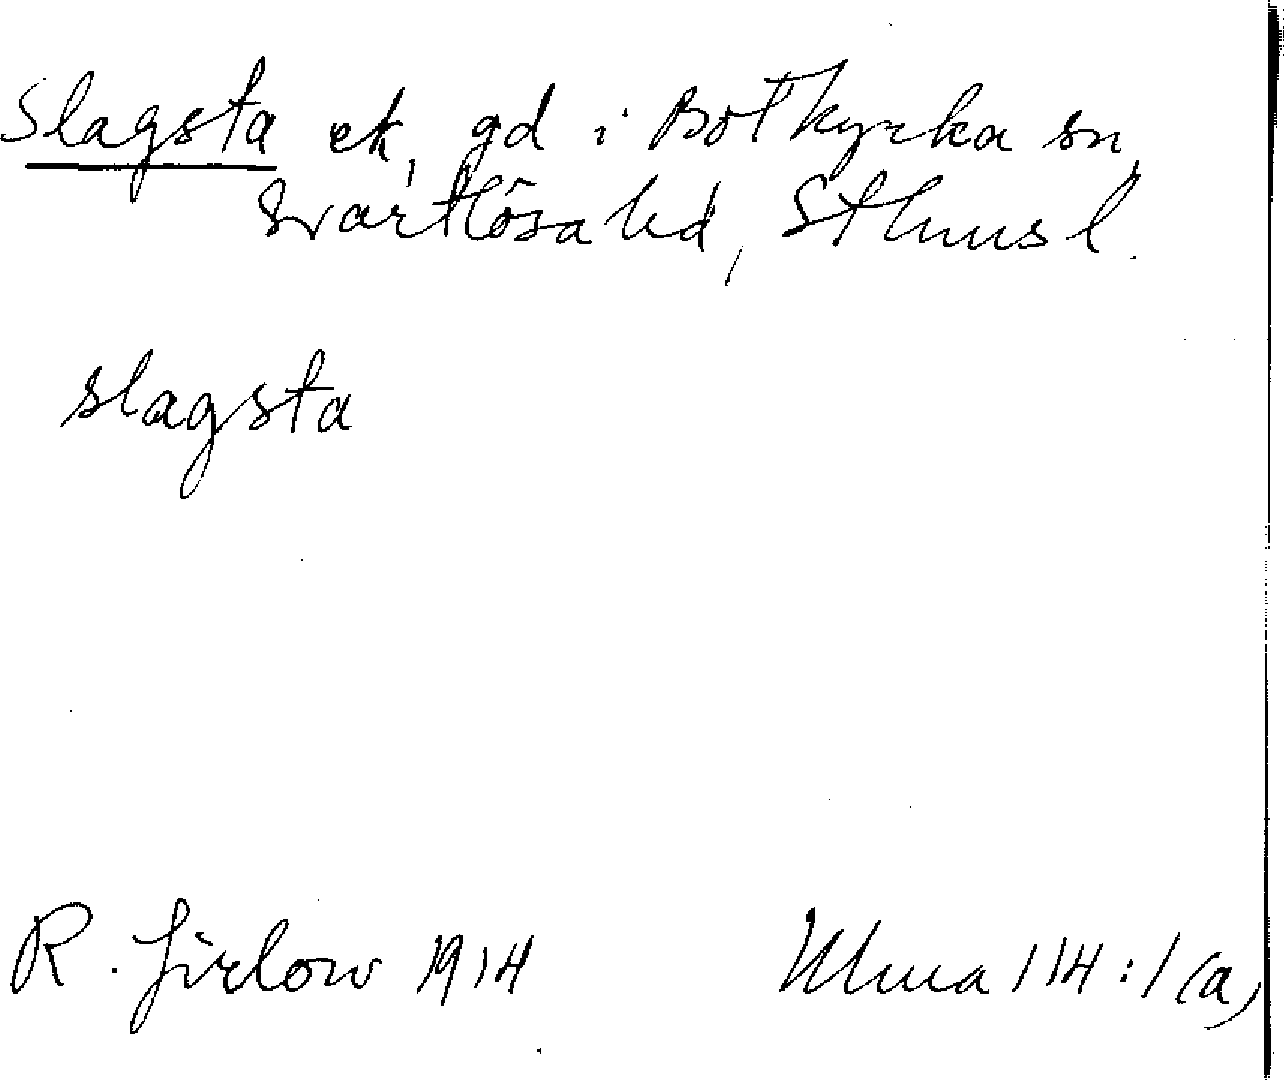 Slagsta ek, gd i Botkyrka sn,
Svartlösa hd, Sthms l.
slagsta
R. Jirlow 1914
Ulma 114:1 (a)